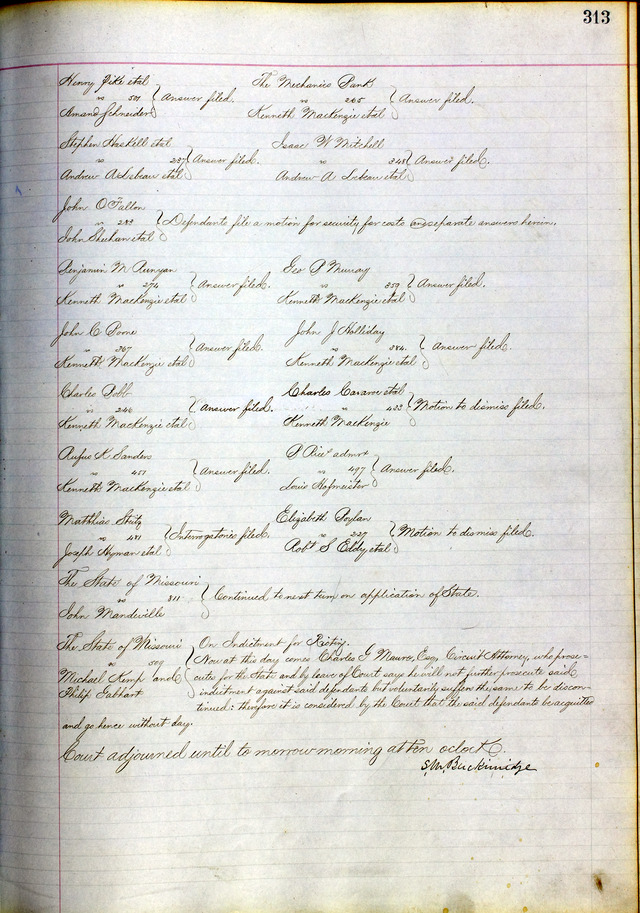 313
Henry Pike etal
vs 501 Answer filed.
Amand Schneider
The Mechanics Bank
vs 265 Answer filed.
Kenneth Mackenzie etal
Stephen Haskell etal
vs 237 Answer filed.
Andrew A Lebeau etal
Isaac W Mitchell
vs 248 Answer filed.
Andrew A Lebeau etal
John O'Fallon
vs Defendants file a motion for security for costs separate answers herein.
John Sheehan etal
Benjamin M Runyan
vs 274 Answer filed.
Kenneth Mackenzie etal
Geo P Murray
vs 359 Answer filed.
Kenneth Mackenzie etal
John C
vs 367 Answer filed.
Kenneth Mackenzie etal
John J Holliday
vs 384 Answer filed.
Kenneth Mackenzie etal
Charles
vs 246 Answer filed.
Kenneth Mackenzie etal
Charles etal
vs 433 Motion to dismiss filed.
Kenneth Mackenzie
Rufus K Sanders
vs 457 Answer filed.
Kenneth Mackenzie etal
P admr
vs 497 Answer filed.
Louis Hofmeister
Matthias
vs 481 Interrogatories filed.
Joseph Hyman etal
Elizabeth
vs 227 Motion to dismiss filed.
Robt S Eddy etal
The State of Missouri
vs 311 Continued to next term on application of State.
John Mandeville
The State of Missouri
vs 509
Michael Kemp and
Philip Gabhart
On Indictment for Rioting.
Now at this day comes Charles G Mauro, Esq, Circuit Attorney, who prose=
cutes for the State and by leave of Court says he will not further prosecute said
indictment against said defendants but voluntarily suffers the same to be discon=
tinued: therefore it is considered by the Court that the said defendants be acquitted
and go hence without day.
Court adjourned until to morrow morning at ten oclock.
S. M. Breckinridge